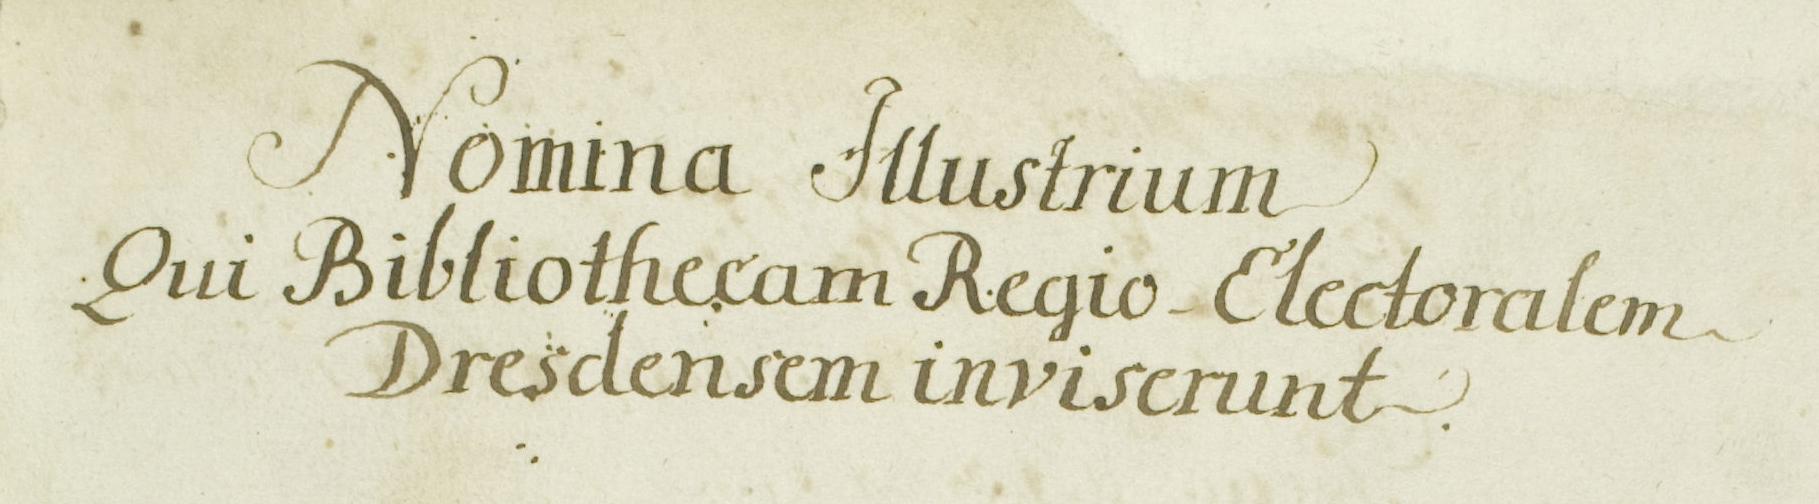 Nomina Illustrium
Qui Bibliothecam Regio-Electoralem
Dresdensem inviserunt.